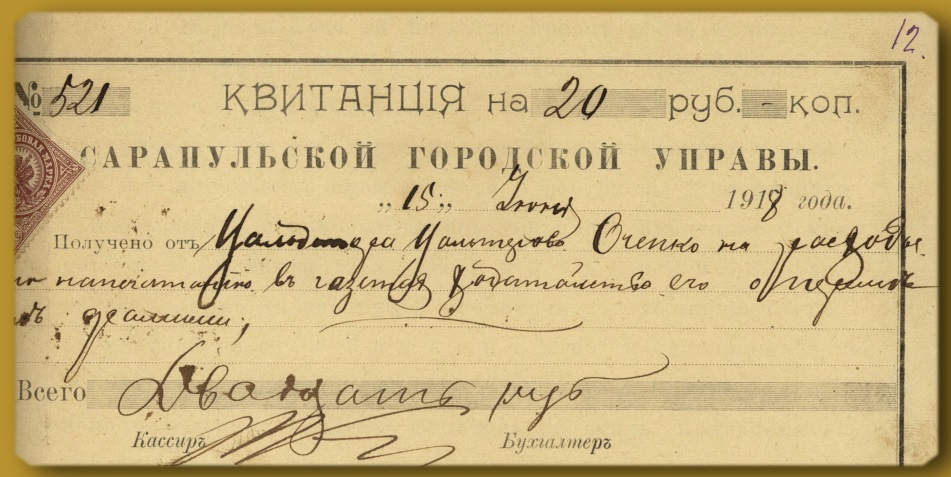 12.
№ 521 КВИТАНЦІЯ на 20 руб. - коп.
САРАПУЛЬСКОЙ ГОРОДСКОЙ УПРАВЫ.
„ 15 „ Іюня 1918 года.
Получено отъ на расходы
напечатанію въ газетах ходатайство его о
фамиліи;
Всего Двадцать руб
Кассиръ Бухгалтеръ